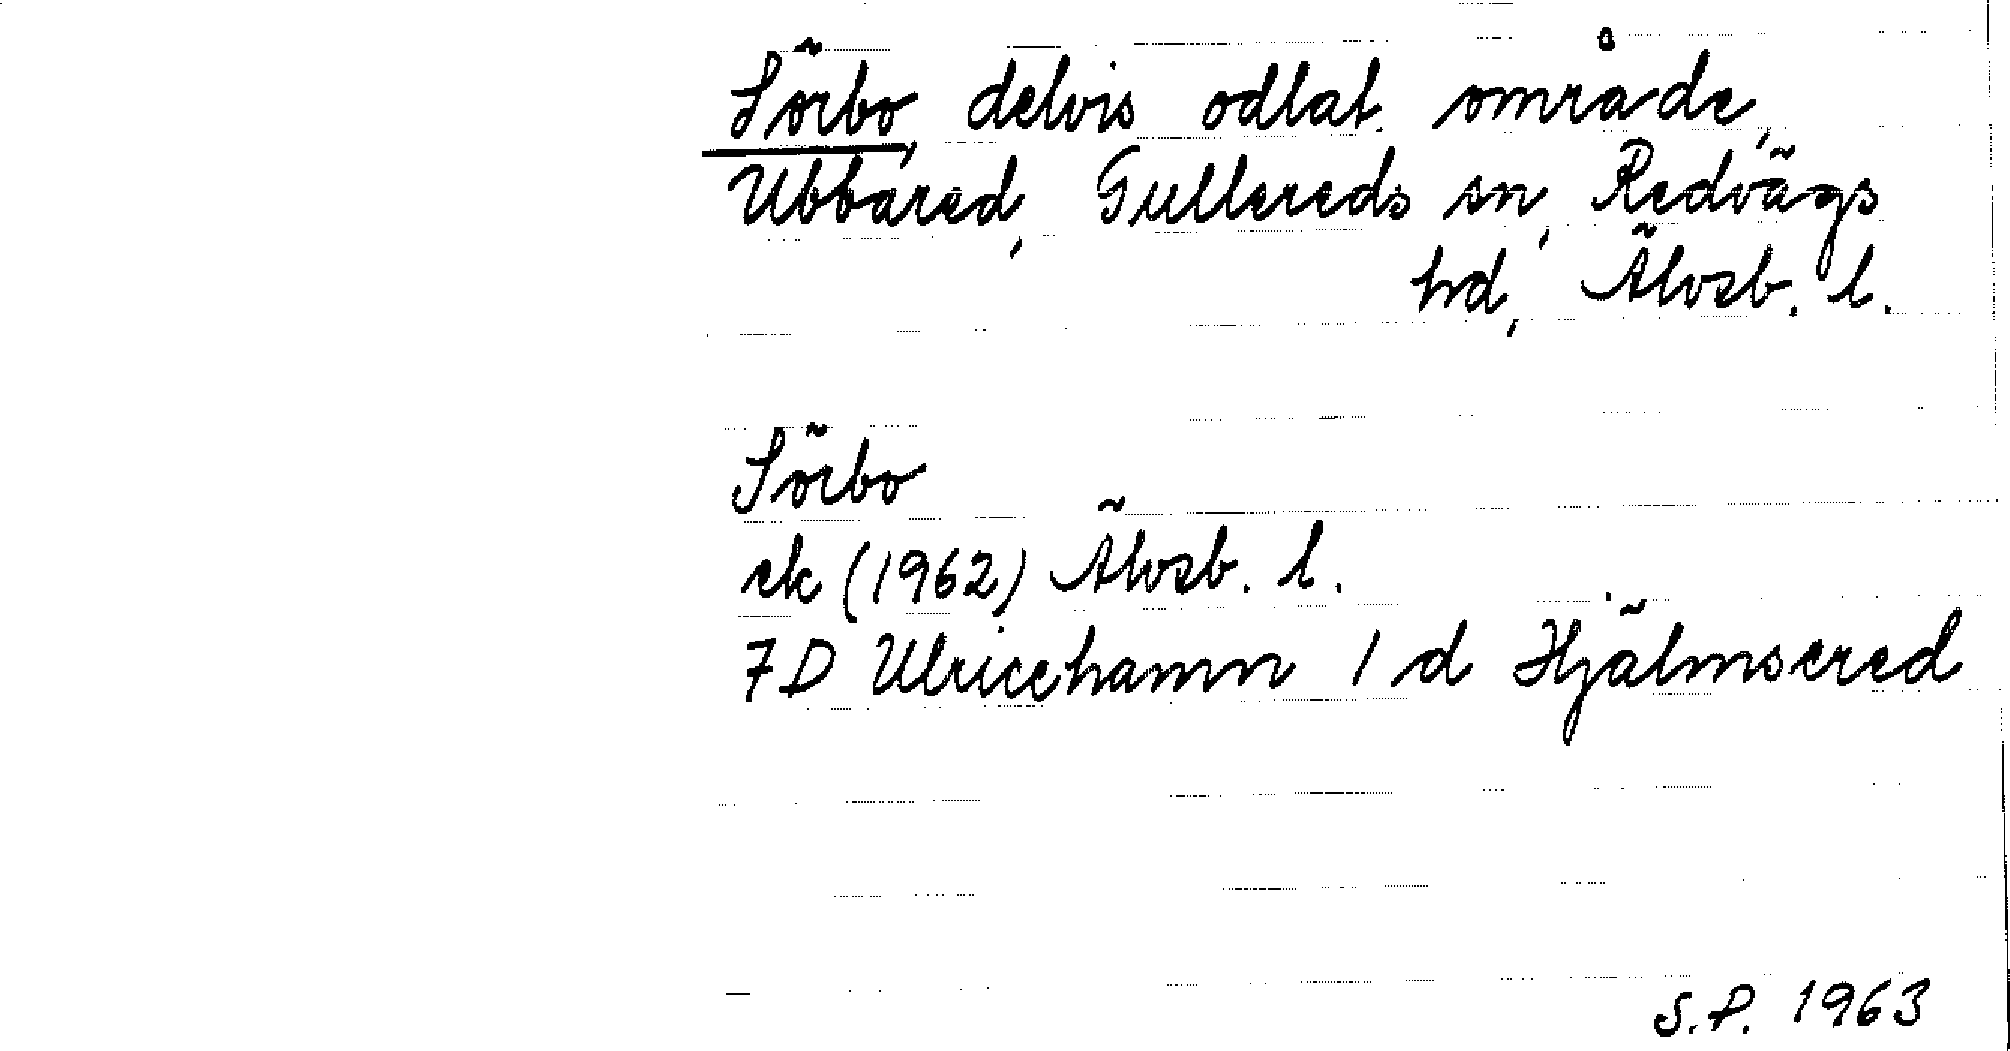 Sörbo, delvis odlat område,
Ubbared, Gullereds sn, Redvägs
hd, Älvsb. l.
Sörbo
ek (1962) Älvsb. l.
7D Ulricehamn 1 d Hjälmsered
S.P. 1963